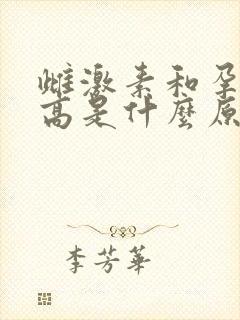 雌激素和孕
高是什麼原
李芳華